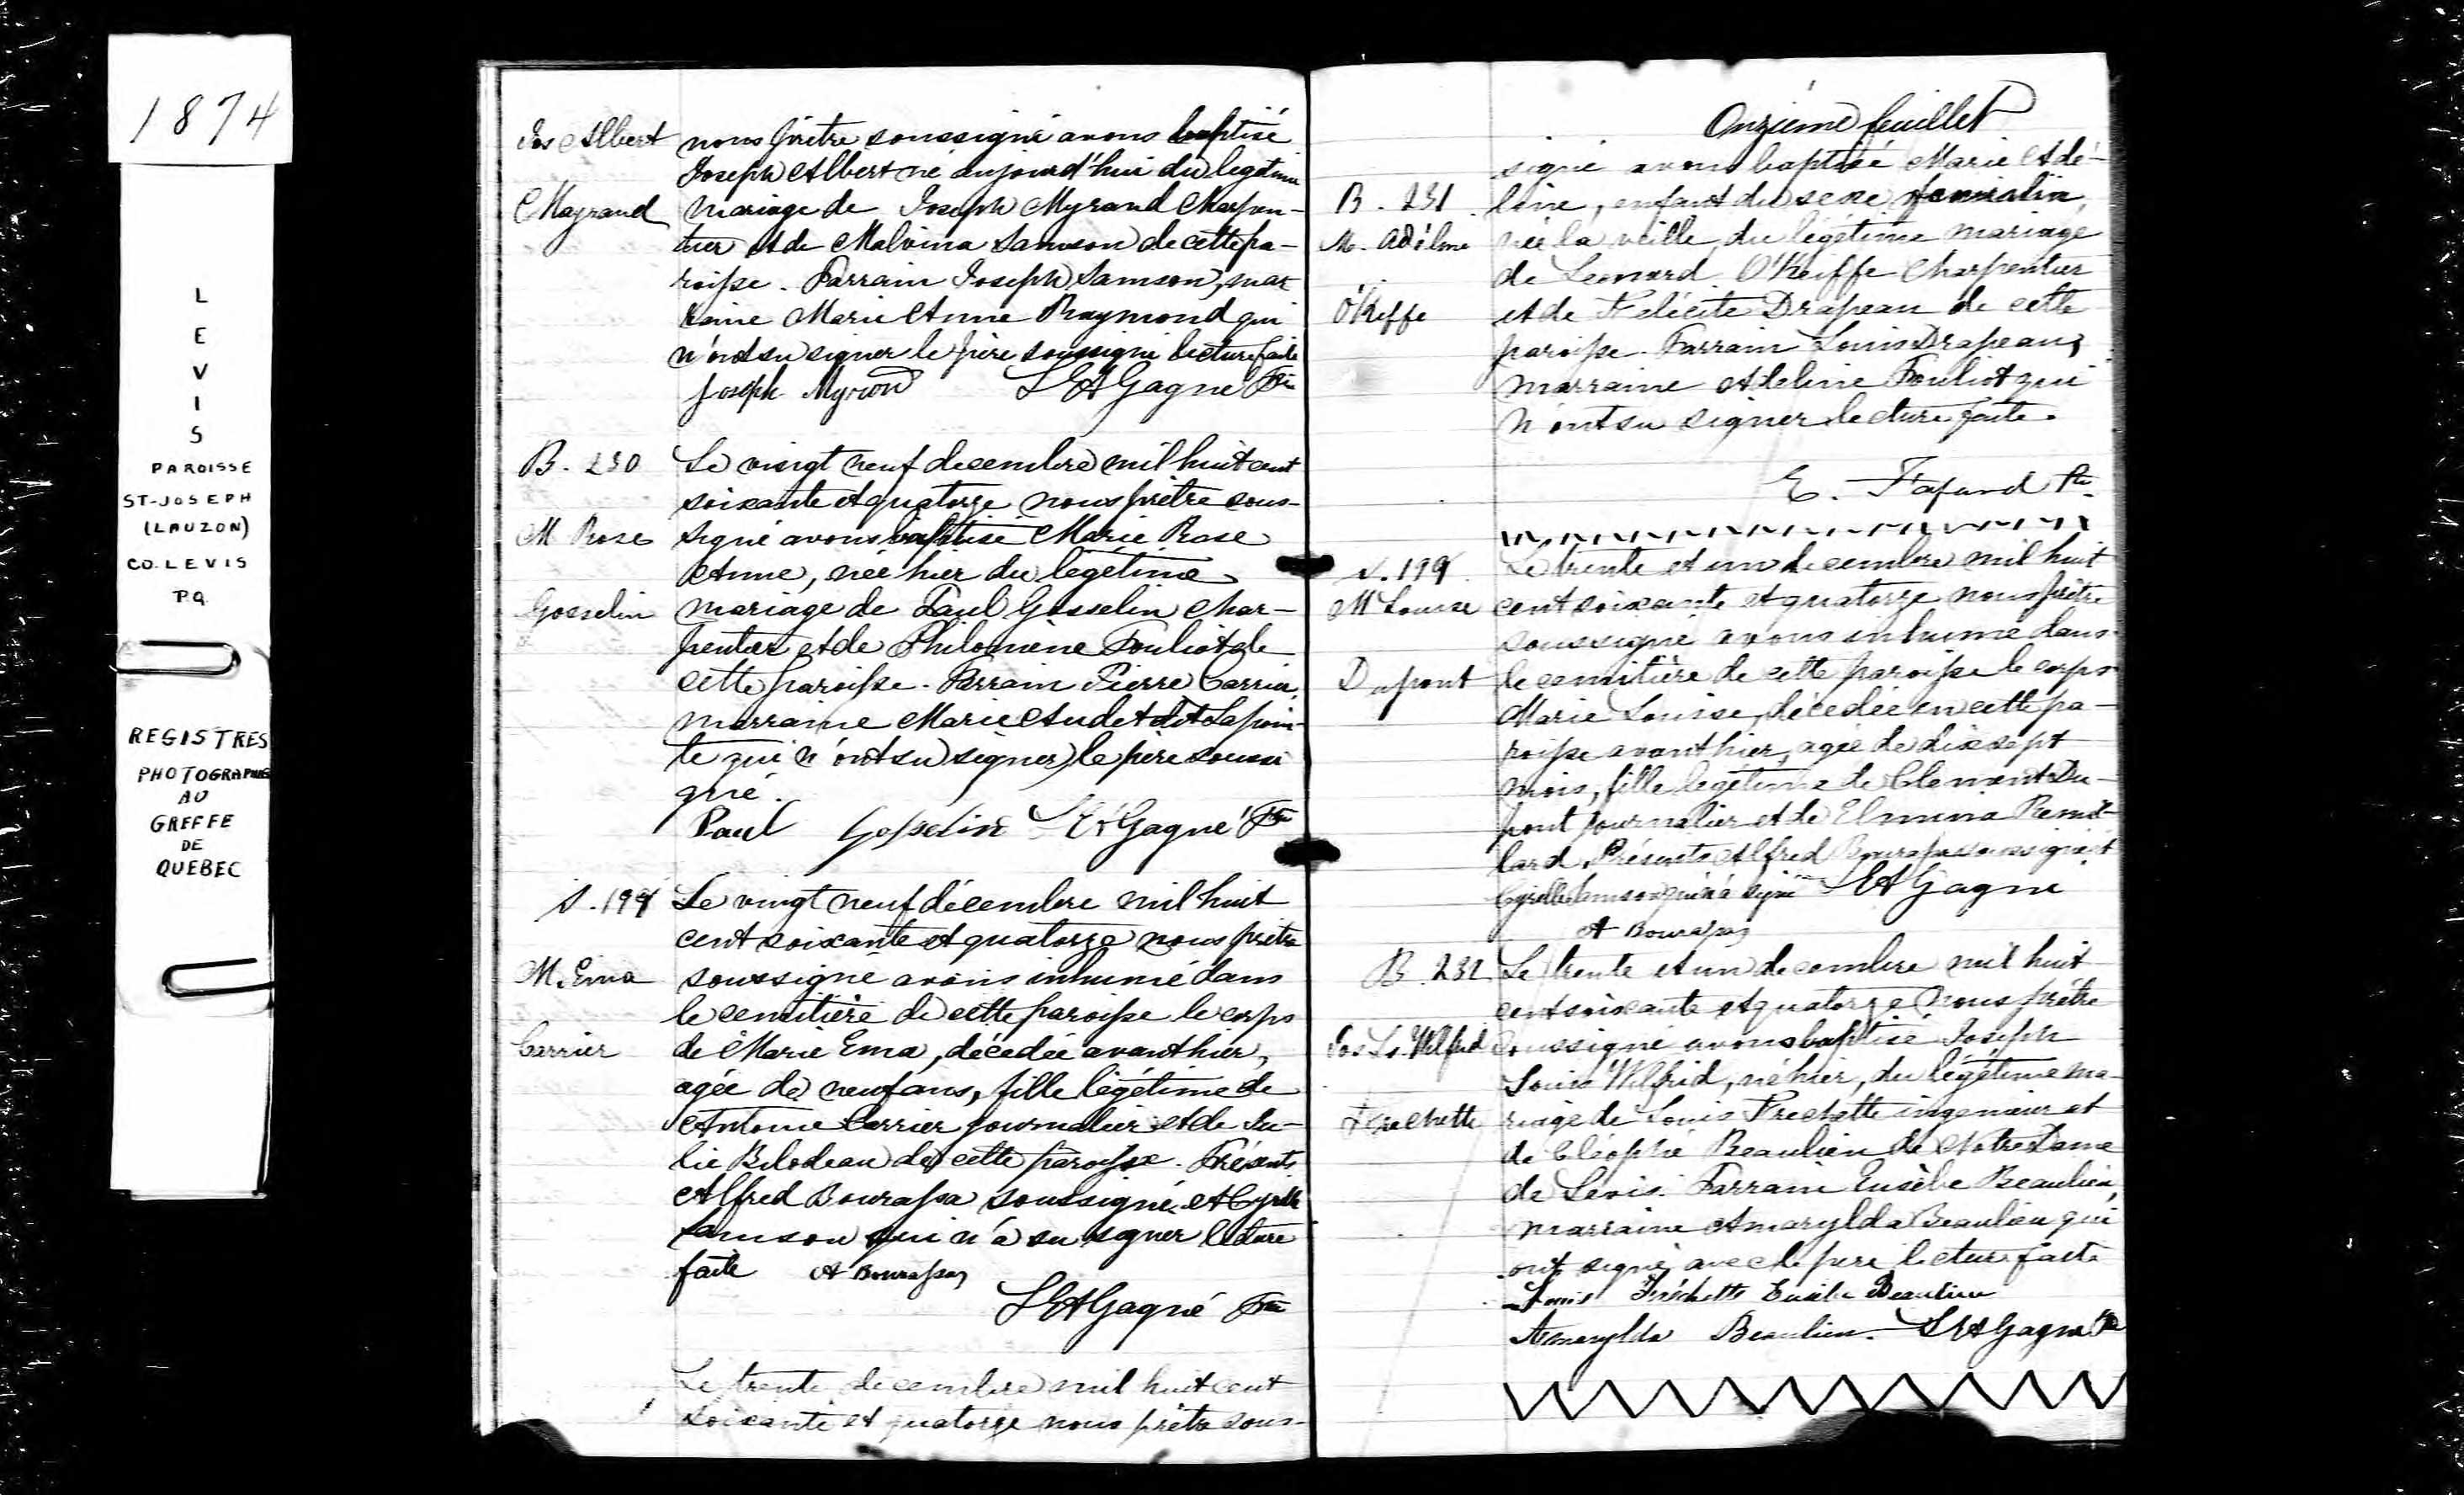 1874
L
E
V
I
S
PAROISSE
ST-JOSEPH
(LAUZON)
CO. LEVIS
P.Q.
REGISTRES
PHOTOGRAPHIES
AU
GREFFE
DE
QUEBEC
Jos Albert
Mayrand
nous prêtre soussigné avons baptisé
Joseph Albert né aujourd'hui du legitime
mariage de Joseph Myrand Charpen-
tier et de Malvina Samson de cette pa-
roisse. Parrain Joseph Samson, mar
raine Marie Anne Raymond qui
n'ont su signer le père soussigné lecture faite
Joseph Myrand LEAGagné Ptre
B. 230
M Rose
Gosselin
Le vingt neuf decembre mil huit cent
soixante et quatorze nous prêtre sous-
signé avons baptisé Marie Rose
Anne, née hier du légétime
mariage de Paul Gosselin Char-
pentier et de Philomène Pouliot de
cette paroisse. Parrain Pierre Carrier,
marraine Marie Audet dit Lapoin-
te qui n'ont su signer, le père soussi
gné.
Paul Gosselin LEAGagné Ptre
S. 199
M. Ema
Carrier
Le vingt neuf décembre mil huit
cent soixante et quatorze nous prêtre
soussigné avons inhumé dans
le cemitière de cette paroisse le corps
de Marie Ema, décédée avant hier,
agée de neuf ans, fille légétime de
Antoine Carrier journalier et de Ju-
lie Bilodeau de cette paroisse. Présents
Alfred Bourassa soussigné et Cyrille
Samson qui n'a su signer lecture
faite A Bourassa
LEAGagné Ptre
Le trente decembre mil huit cent
soixante et quatorze nous prêtre sous-
Onzième feuillet
B. 231
M. Adéline
O'Keffe
signé avons baptisé Marie Adé-
line, enfant du sexe feminin,
née la veille du légétime mariage
de Leonard O'Keiffe Charpentier
et de Felécité Drapeau de cette
paroisse. Parrain Louis Drapeau,
marraine Adeline Pouliot qui
n'ont su signer lecture faite.
E. Fafard Ptre
S. 199
M Louise
Dupont
Le trente et un decembre mil huit
cent soixante et quatorze nous prêtre
soussigné avons inhumé dans
le cemitière de cette paroisse le corps
Marie Louise, décédée en cette pa-
roisse avant hier, agée de dix sept
mois, fille legétime de Clement Du-
pont journalier et de Elmina Remil-
lard. Présents Alfred Bourassa soussigné et
Cyrille Samson qui n'a signé LEAGagné
A Bourassa
B. 232
Jos Ls. Wilfrid
Frechette
Le trente et un decembre mil huit
cent soixante et quatorze nous prêtre
soussigné avons baptisé Joseph
Louis Wilfrid, né hier, du légétime ma-
riage de Louis Frechette ingenieur et
de Cléophé Beaulieu de Notre Dame
de Levis. Parrain Eusèbe Beaulieu,
marraine Amarylda Beaulieu qui
ont signé avec le père lecture faite
Louis Fréchette Eusèbe Beaulieu
Amarylda Beaulieu. LEAGagné Ptre